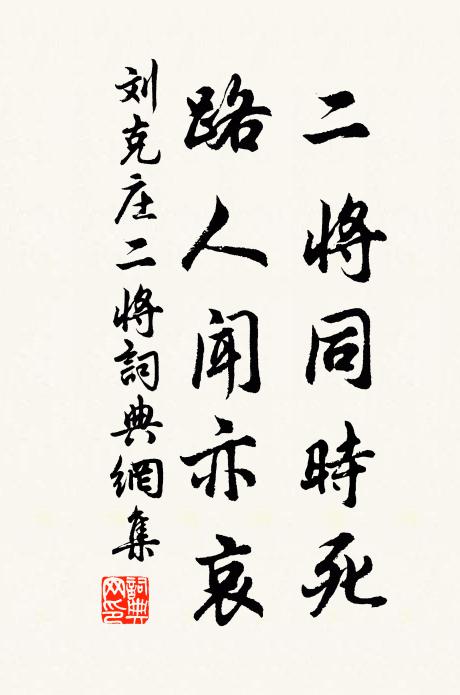 二将同時死
路人闻亦哀
刘克庄二将詞典網集
詞典网印